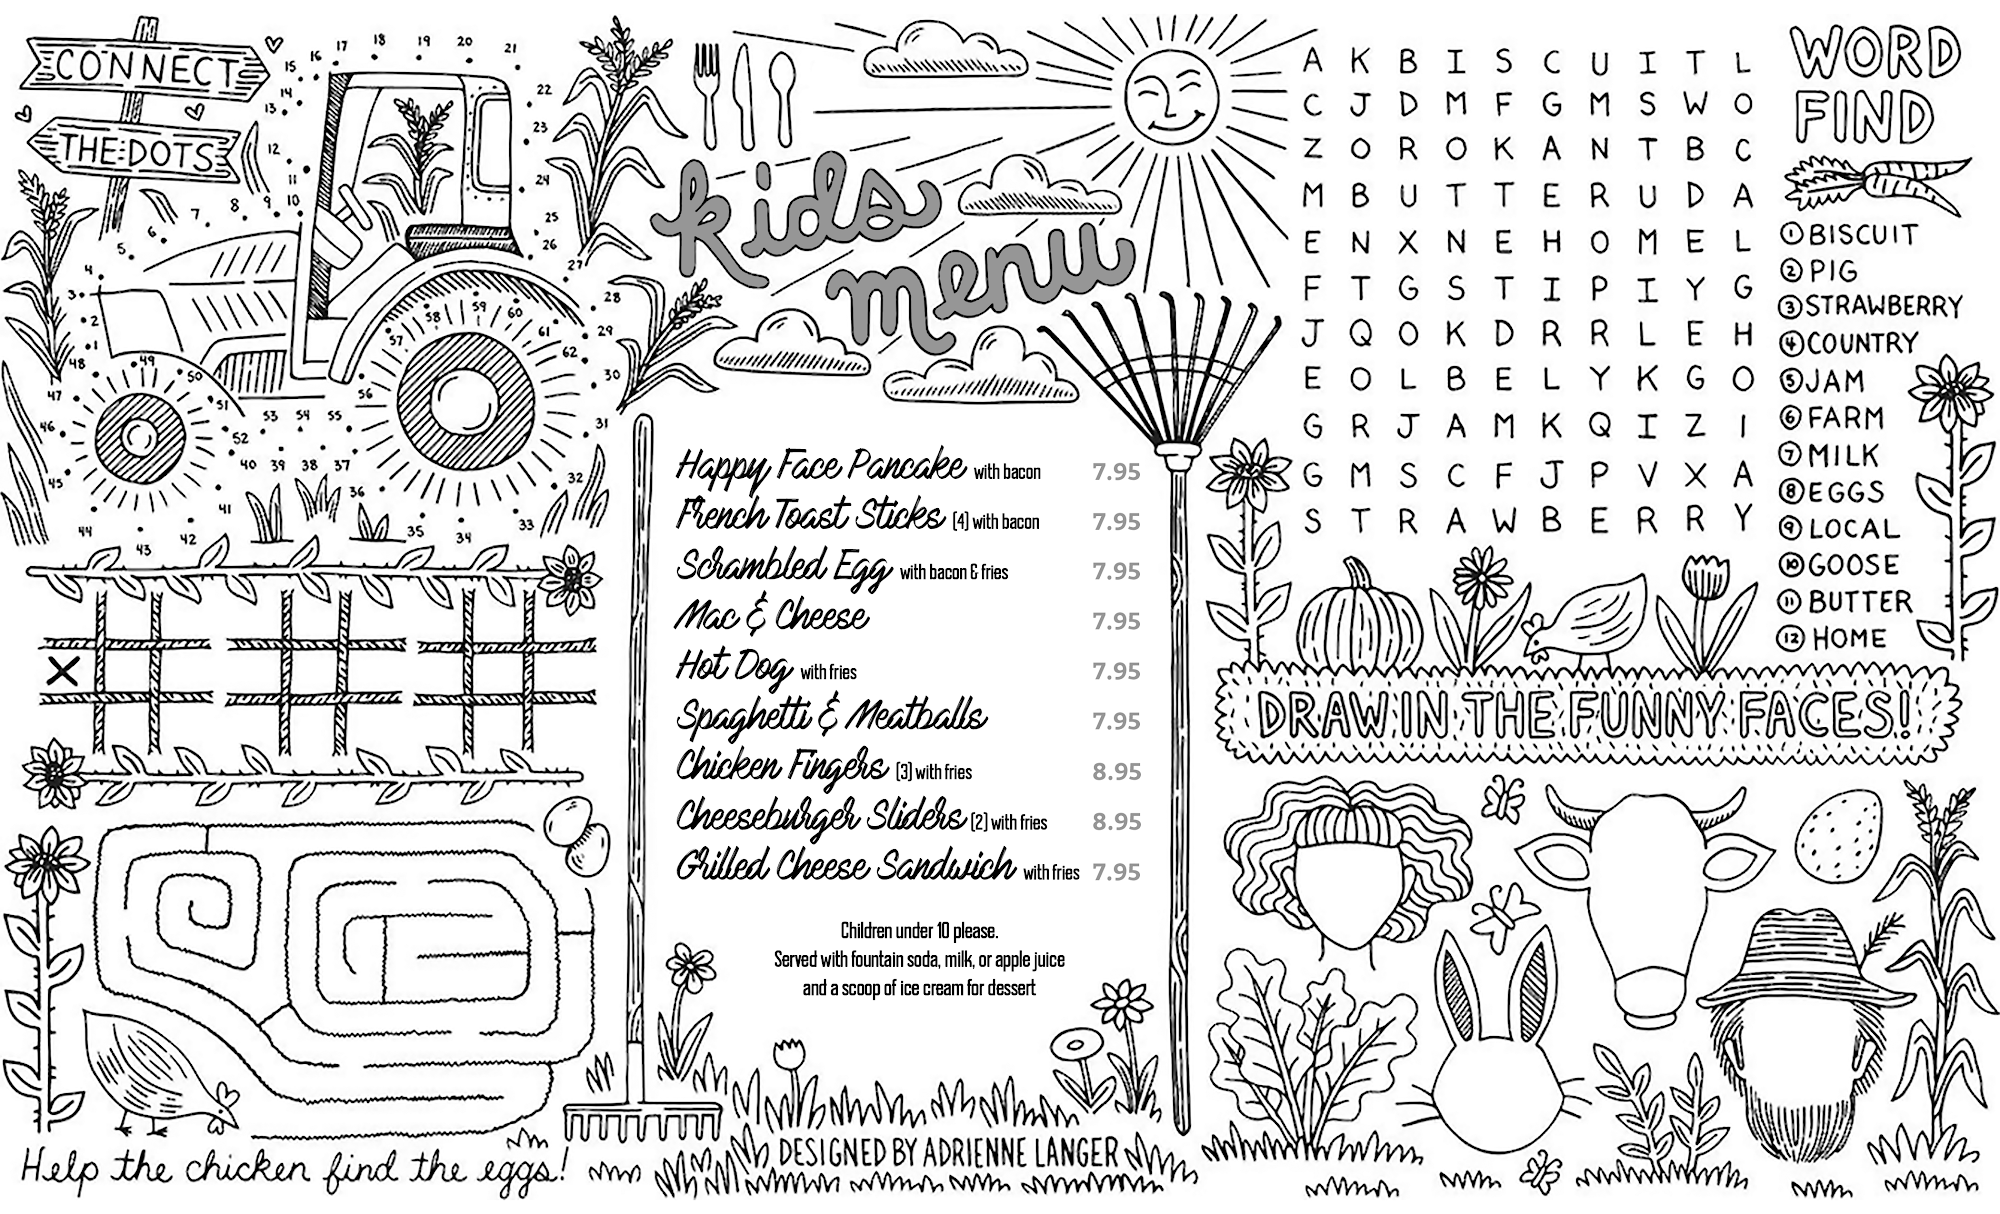 CONNECT
THE DOTS
1
2
3
4
5
6
7
8
9
10
11
12
13
14
15
16
17
18
19
20
21
22
23
24
25
26
27
28
29
30
31
32
33
34
35
36
37
38
39
40
41
42
43
44
45
46
47
48
49
50
51
52
53
54
55
56
57
58
59
60
61
62
X
Help the chicken find the eggs!
kids
menu
Happy Face Pancake with bacon 7.95
French Toast Sticks (4) with bacon 7.95
Scrambled Egg with bacon & fries 7.95
Mac & Cheese 7.95
Hot Dog with fries 7.95
Spaghetti & Meatballs 7.95
Chicken Fingers (3) with fries 8.95
Cheeseburger Sliders (2) with fries 8.95
Grilled Cheese Sandwich with fries 7.95
Children under 10 please.
Served with fountain soda, milk, or apple juice
and a scoop of ice cream for dessert
DESIGNED BY ADRIENNE LANGER
A K B I S C U I T L
C J D M F G M S W O
Z O R O K A N T B C
M B U T T E R U D A
E N X N E H O M E L
F T G S T I P I Y G
J Q O K D R R L E H
E O L B E L Y K G O
G R J A M K Q I Z I
G M S C F J P V X A
S T R A W B E R R Y
WORD
FIND
1 BISCUIT
2 PIG
3 STRAWBERRY
4 COUNTRY
5 JAM
6 FARM
7 MILK
8 EGGS
9 LOCAL
10 GOOSE
11 BUTTER
12 HOME
DRAW IN THE FUNNY FACES!